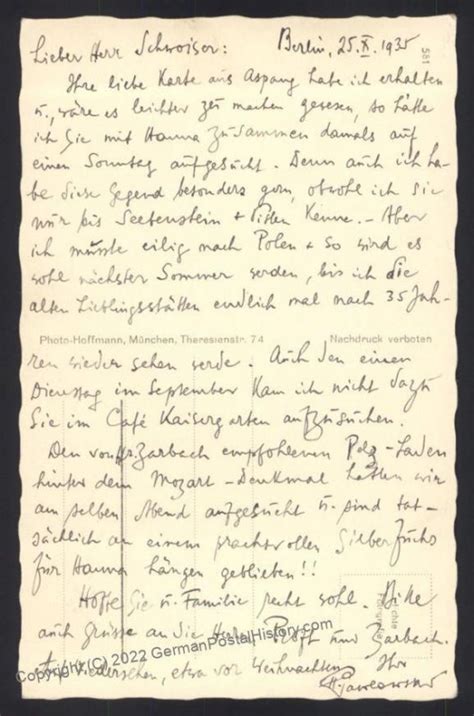 Lieber Herr Schwoiser: Berlin, 25.X.1935
581
Ihre liebe Karte aus Aspang habe ich erhalten
u., wäre es leichter zu machen gewesen, so hätte
ich Sie mit Hanna zusammen damals auf
einen Sonntag aufgesucht. Denn auch ich ha-
be diese Gegend besonders gern, obwohl ich sie
nur bis Seebenstein + Pitten kenne. – Aber
ich musste eilig nach Polen + so wird es
wohl nächster Sommer werden, bis ich die
alten Lieblingsstätten endlich mal nach 35 Jah-
Photo-Hoffmann, München, Theresienstr. 74 Nachdruck verboten
ren wieder sehen werde. Auch den einen
Dienstag im September kam ich nicht dazu
Sie im Café Kaisergarten aufzusuchen.
Den von Zarbach empfohlenen Pelz-Laden
hinter dem Mozart-Denkmal hatten wir
am selben Abend aufgesucht u. sind tat-
sächlich an einem prachtvollen Silberfuchs
für Hanna hängen geblieben!!
Hoffe Sie u. Familie recht wohl. Bitte
auch Grüsse an die Herrn und Zarbach.
Wiedersehen, etwa vor Weihnachten Ihr
Copyright (C) 2022 GermanPostalHistory.com